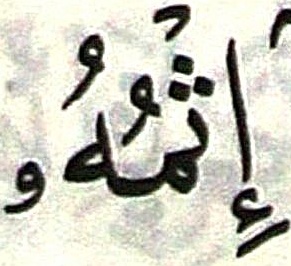 إِثْمُهُۥ